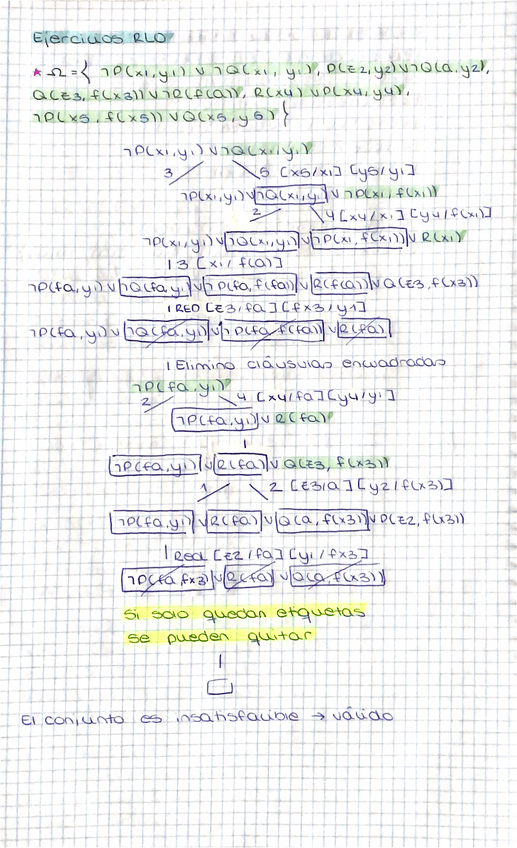 Ejercicios RLO
* Ω = { ¬P(x1, y1) ∨ ¬Q(x1, y1), P(z2, y2) ∨ ¬Q(a, y2),
Q(z3, f(x3)) ∨ ¬R(f(a)), R(x4) ∨ P(x4, y4),
¬P(x5, f(x5)) ∨ Q(x5, y5) }
¬P(x1, y1) ∨ ¬Q(x1, y1)
3 5 [x5/x1] [y5/y1]
¬P(x1, y1) ∨ ¬Q(x1, y1) ∨ ¬P(x1, f(x1))
2 4 [x4/x1] [y4/f(x1)]
¬P(x1, y1) ∨ ¬Q(x1, y1) ∨ ¬P(x1, f(x1)) ∨ R(x1)
3 [x1/f(a)]
¬P(fa, y1) ∨ ¬Q(fa, y1) ∨ ¬P(fa, f(fa)) ∨ R(f(a)) ∨ Q(z3, f(x3))
RED [z3/fa] [fx3/y1]
¬P(fa, y1) ∨ ¬Q(fa, y1) ∨ ¬P(fa, f(fa)) ∨ R(fa)
Elimino cláusulas encuadradas
¬P(fa, y1)
2 4 [x4/fa] [y4/y1]
¬P(fa, y1) ∨ R(fa)
¬P(fa, y1) ∨ R(fa) ∨ Q(z3, f(x3))
1 2 [z3/a] [y2/f(x3)]
¬P(fa, y1) ∨ R(fa) ∨ Q(a, f(x3)) ∨ P(z2, f(x3))
Red [z2/fa] [y1/fx3]
¬P(fa, fx3) ∨ R(fa) ∨ Q(a, f(x3))
Si solo quedan etiquetas
se pueden quitar
El conjunto es insatisfacible → válido